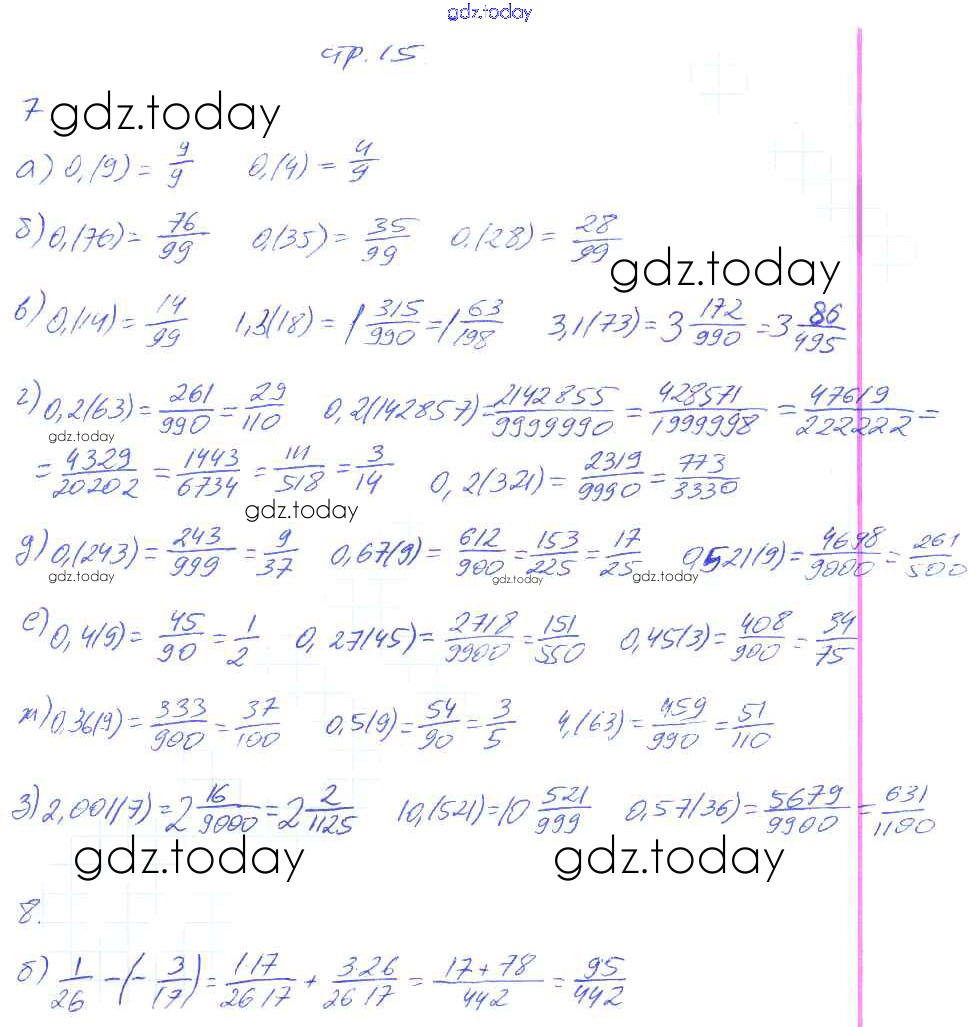 gdz.today
стр. 15.
7 gdz.today
а) 0,(9) = 9/9 0,(4) = 4/9
б) 0,(76) = 76/99 0,(35) = 35/99 0,(28) = 28/99
gdz.today
в) 0,(14) = 14/99 1,3(18) = 1 315/990 = 1 63/198 3,1(73) = 3 172/990 = 3 86/495
г) 0,2(63) = 261/990 = 29/110 0,2(142857) = 2142855/9999990 = 428571/1999998 = 47619/222222 =
gdz.today
= 4329/20202 = 1443/6734 = 111/518 = 3/14 0,2(321) = 2319/9990 = 773/3330
gdz.today
д) 0,(243) = 243/999 = 9/37 0,67(9) = 612/900 = 153/225 = 17/25 0,521(9) = 4698/9000 = 261/500
gdz.today gdz.today gdz.today
е) 0,4(9) = 45/90 = 1/2 0,27(45) = 2718/9900 = 151/550 0,45(3) = 408/900 = 34/75
gdz.today gdz.today gdz.today
ж) 0,36(9) = 333/900 = 37/100 0,5(9) = 54/90 = 3/5 4,(63) = 459/990 = 51/110
з) 2,001(7) = 2 16/9000 = 2 2/1125 10,(521) = 10 521/999 0,57(36) = 5679/9900 = 631/1100
gdz.today gdz.today
8.
б) 1/26 - (- 3/17) = 1·17/26·17 + 3·26/26·17 = 17+78/442 = 95/442